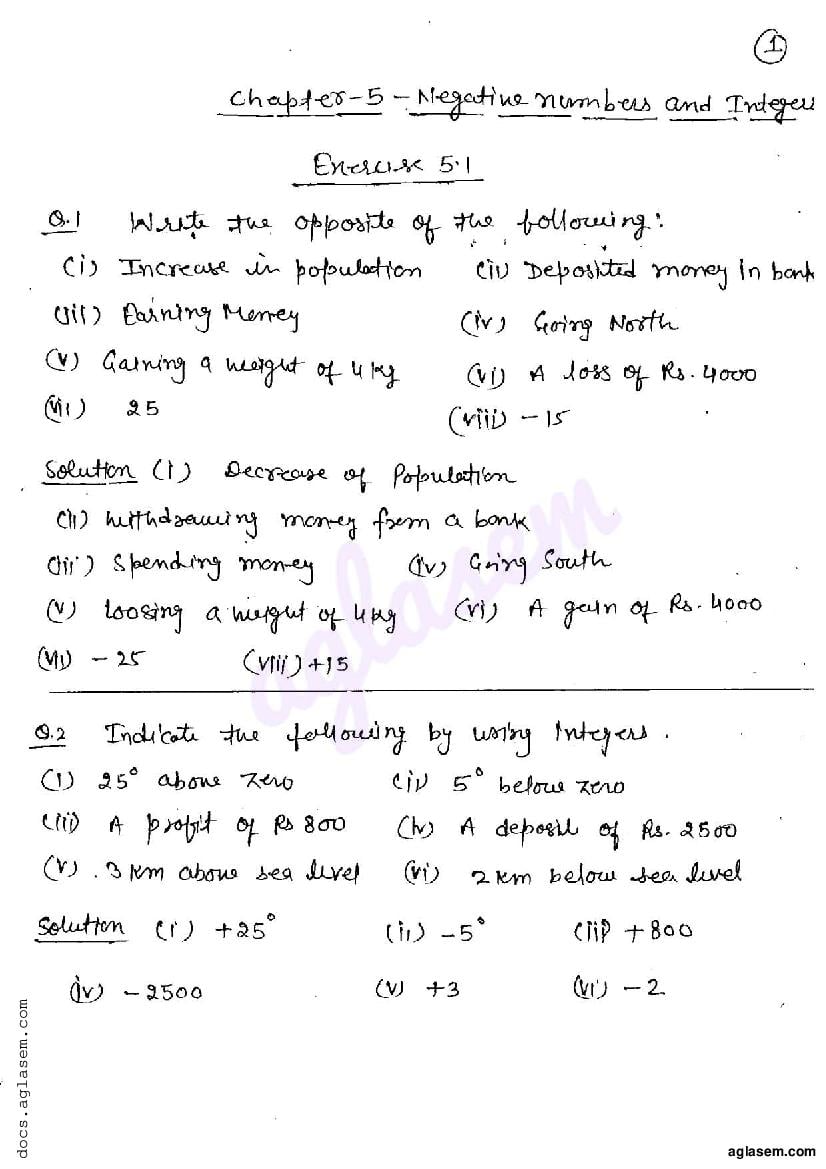 1
Chapter-5 - Negative numbers and Integers
Exercise 5.1
Q.1 Write the opposite of the following:
(i) Increase in population (ii) Deposited money in bank
(iii) Earning Money (iv) Going North
(v) Gaining a weight of 4 kg (vi) A loss of Rs. 4000
(vii) 25 (viii) -15
Solution (i) Decrease of Population
(ii) Withdrawing money from a bank
(iii) Spending money (iv) Going South
(v) loosing a weight of 4 kg (vi) A gain of Rs. 4000
(vii) -25 (viii) +15
Q.2 Indicate the following by using Integers.
(i) 25° above zero (ii) 5° below zero
(iii) A profit of Rs 800 (iv) A deposit of Rs. 2500
(v) 3 km above sea level (vi) 2 km below sea level
Solution (i) +25° (ii) -5° (iii) +800
(iv) -2500 (v) +3 (vi) -2
aglasem
docs.aglasem.com
aglasem.com